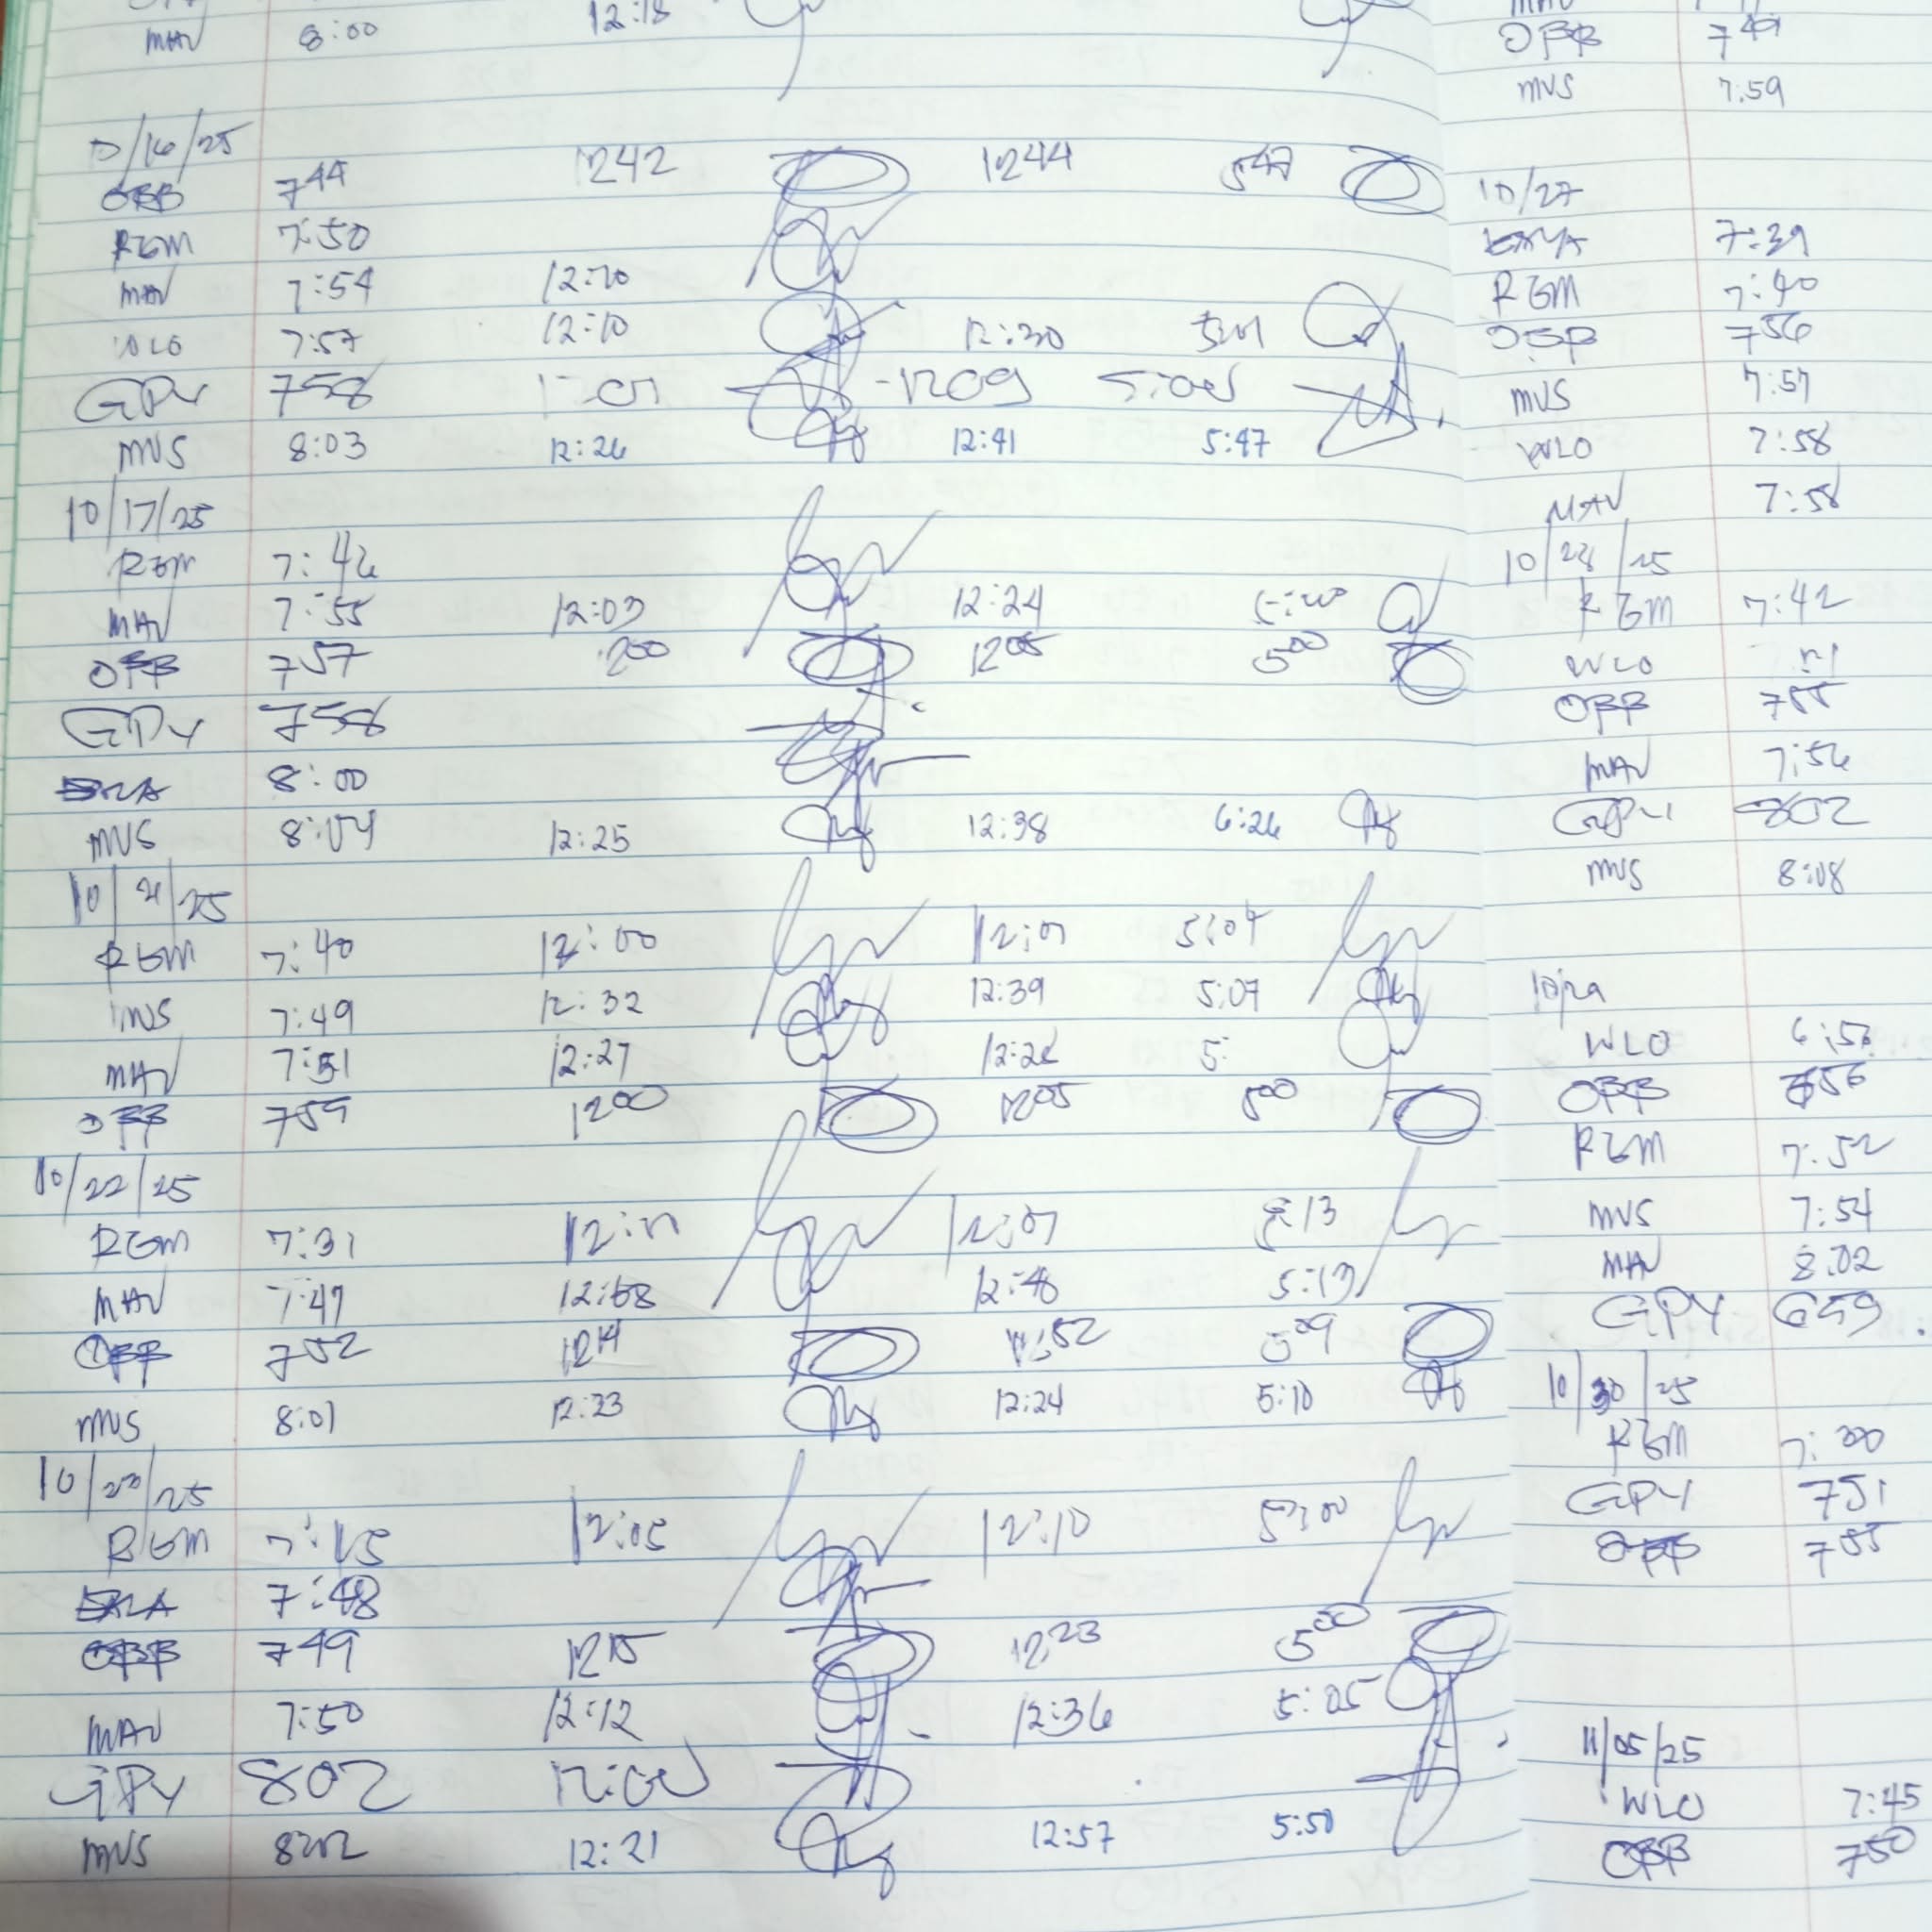 MAV 8:00 12:18
10/16/25
OBB 7 44 1242 1244 5 47
RGM 7:50
MAV 7:54 12:20
WLO 7:57 12:10 12:30 5:01
GPY 758 1209
MVS 8:03 12:26 12:41 5:47
10/17/25
RGM 7:42
MAV 7:55 12:03 12:24 5:00
OBB 757 1200 1205 5 00
GPY 758
8:00
MVS 8:04 12:25 12:38 6:26
10/21/25
RGM 7:40 12:00 12:01 5:04
MVS 7:49 12:32 12:39 5:07
MAV 7:51 12:27 12:28 5:
OBB 759 1200 1205 500
10/22/25
RGM 7:31 12:01 12:07 5:13
MAV 7:47 12:48 5:13
OBB 752 1214 5 09
MVS 8:01 12:23 12:24 5:10
10/23/25
RGM 7:45 12:05 12:10 5:00
7:48
OBB 749 1215 1223 5 00
MAV 7:50 12:12 12:36 5:05
GPY 802 12:00
MVS 8:02 12:21 12:57 5:50
OBB 7 49
MVS 7:59
10/27
7:39
RGM 7:40
OBB 756
MVS 7:57
WLO 7:58
MAV 7:58
10/28/25
RGM 7:42
WLO
OBB 755
MAV 7:56
GPY 802
MVS 8:08
10/29
WLO 6:53
OBB 656
RGM 7:52
MVS 7:54
MAV 8:02
GPY 659
10/30/25
RGM 7:30
GPY 751
OBB 755
11/05/25
WLO 7:45
OBB 750